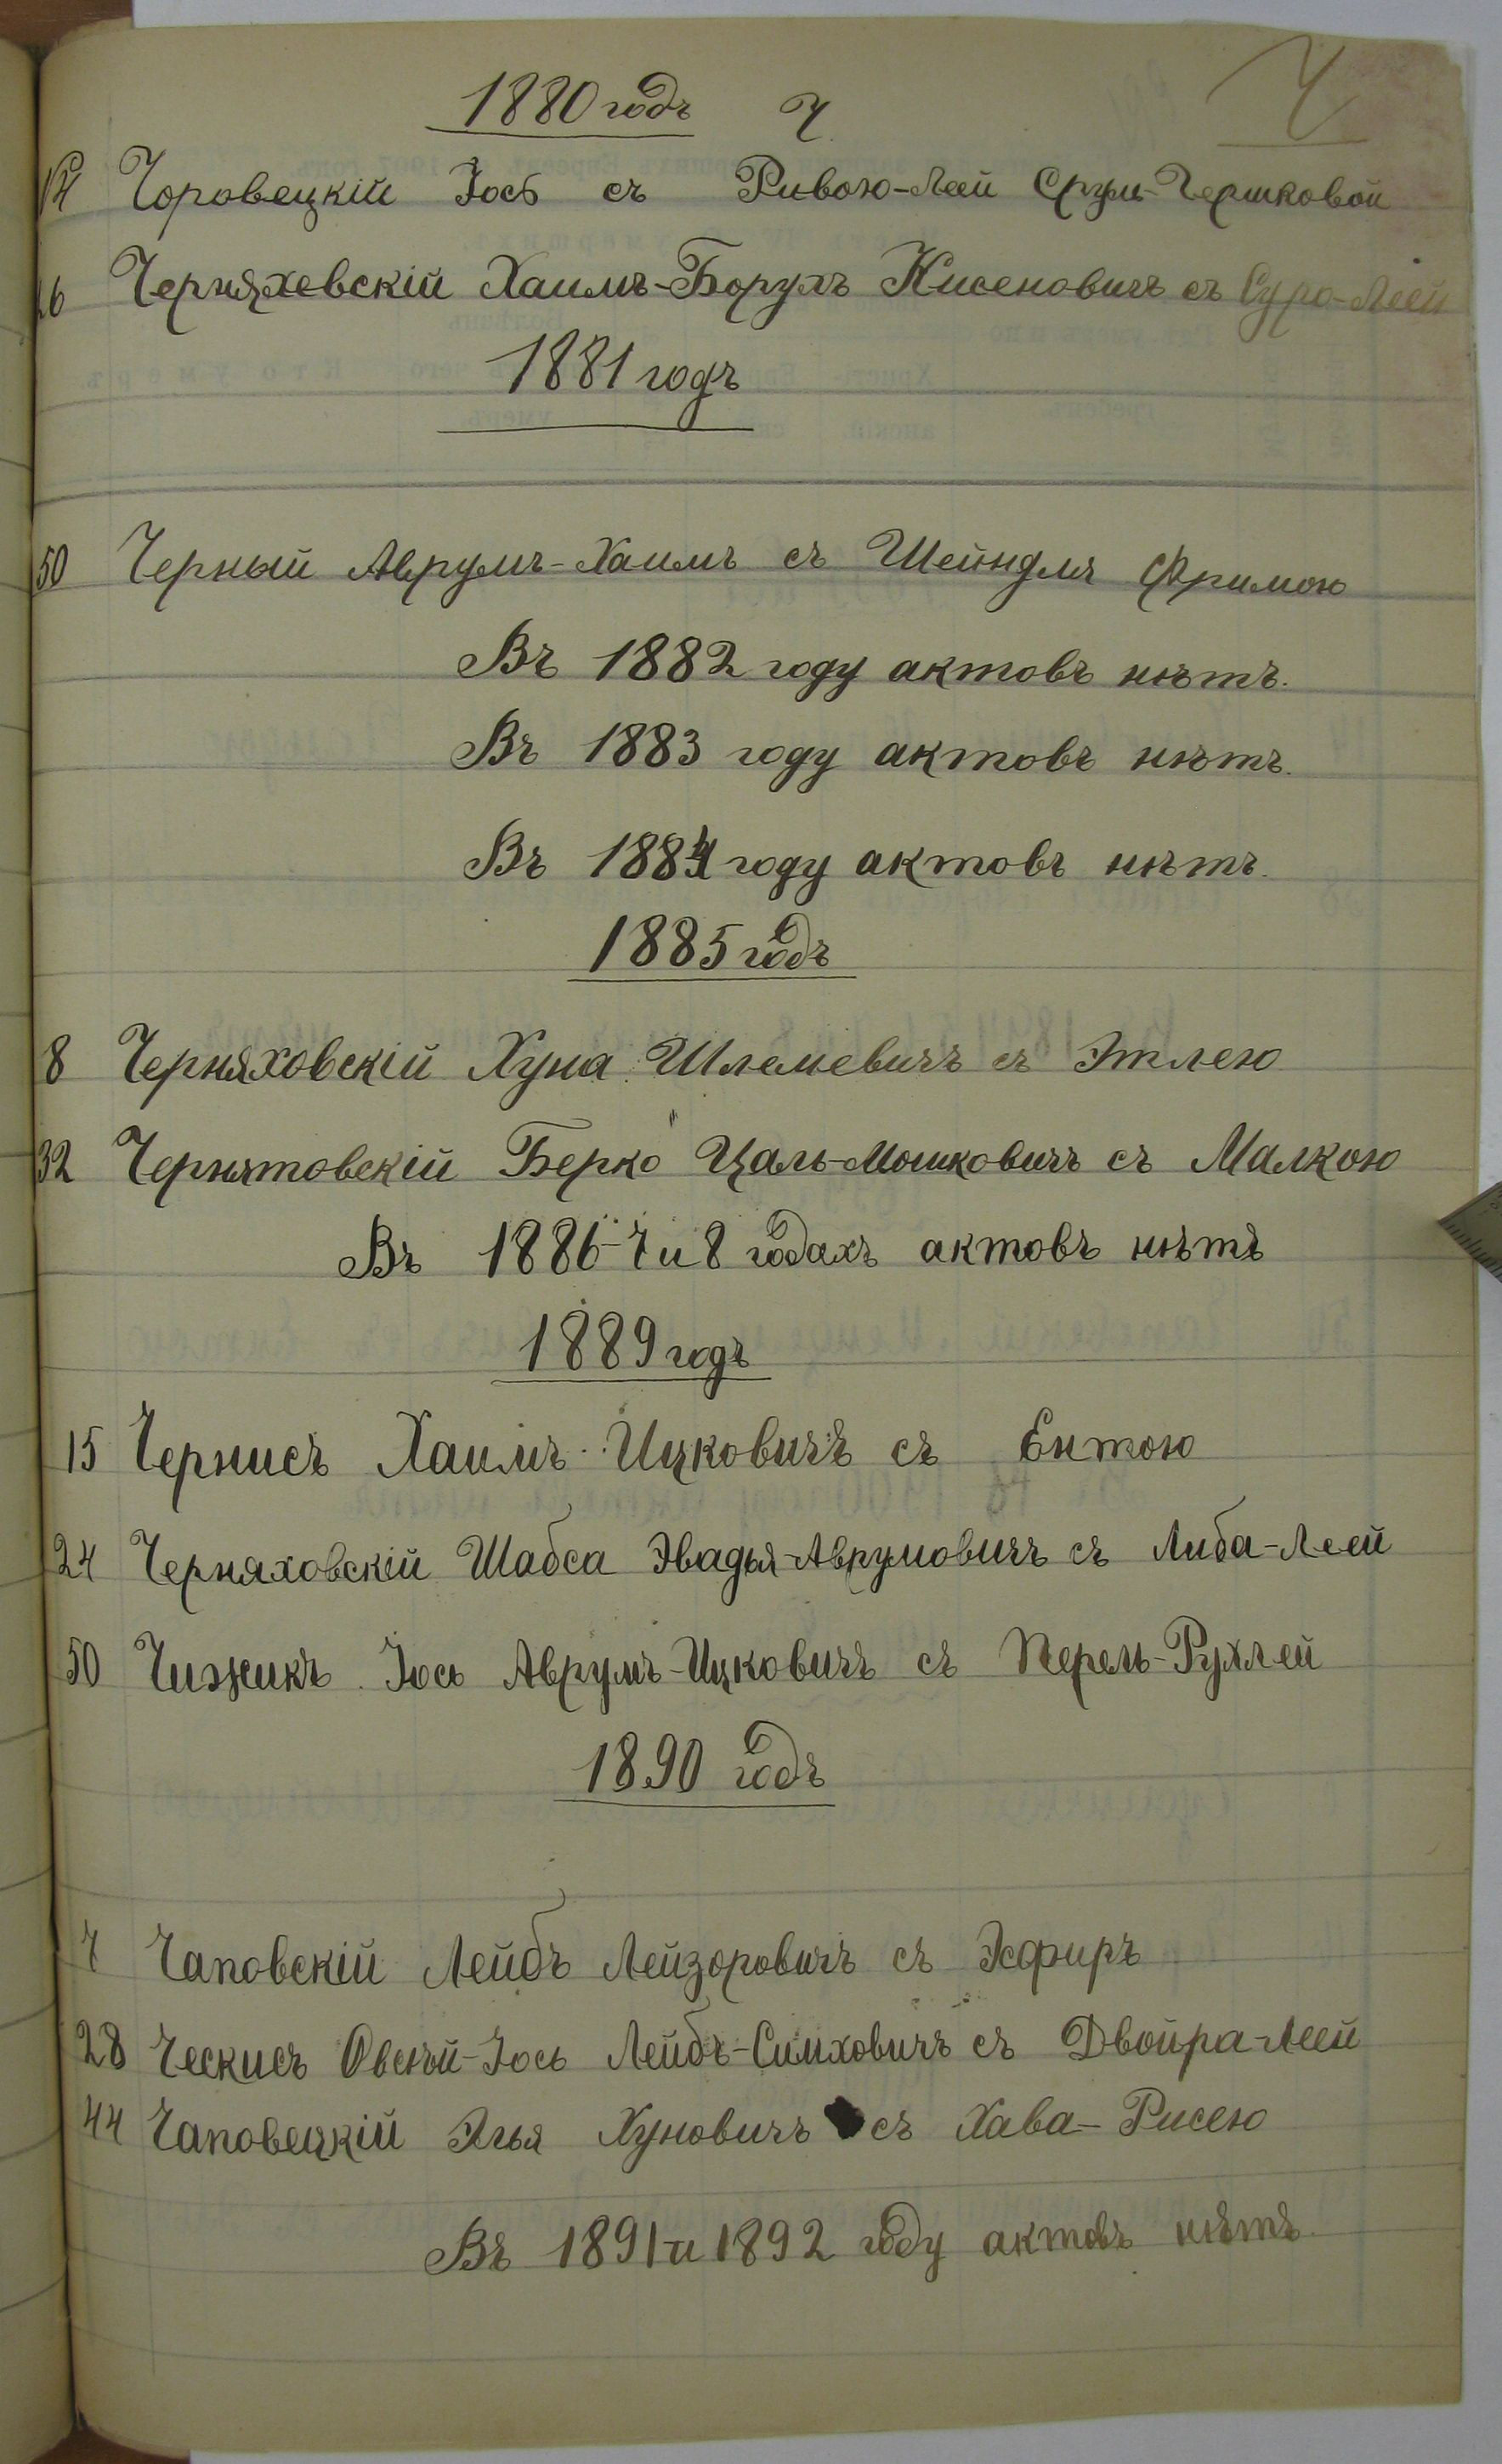 1880 годъ Ч Ч
Чоровецкій Іосъ съ Ривою-Леей Срул-Гершковой
26 Черняхевскій Хаимъ-Борухъ Кисеновичъ съ Сура-Леей
1881 годъ
50 Черный Аврумъ-Хаимъ съ Шейндля Фримою
Въ 1882 году актовъ нѣтъ.
Въ 1883 году актовъ нѣтъ.
Въ 1884 году актовъ нѣтъ.
1885 годъ
8 Черняховскій Хуна Шлемевичъ съ Этлею
32 Чернятовскій Берко Цаль-Мошковичъ съ Малкою
Въ 1886-7 и 8 годахъ актовъ нѣтъ
1889 годъ
15 Чернисъ Хаимъ Ицковичъ съ Ентою
24 Черняховскій Шабса Эвадья-Аврумовичъ съ Либа-Леей
50 Чижикъ Іось Аврумъ-Ицковичъ съ Перель-Рухлей
1890 годъ
7 Чаповскій Лейбъ Лейзоровичъ съ Эсфиръ
28 Ческисъ Овсѣй-Іось Лейбъ-Симховичъ съ Двойра-Леей
44 Чаповецкій Элья Хуновичъ съ Хава-Рисею
Въ 1891 и 1892 году актовъ нѣтъ.